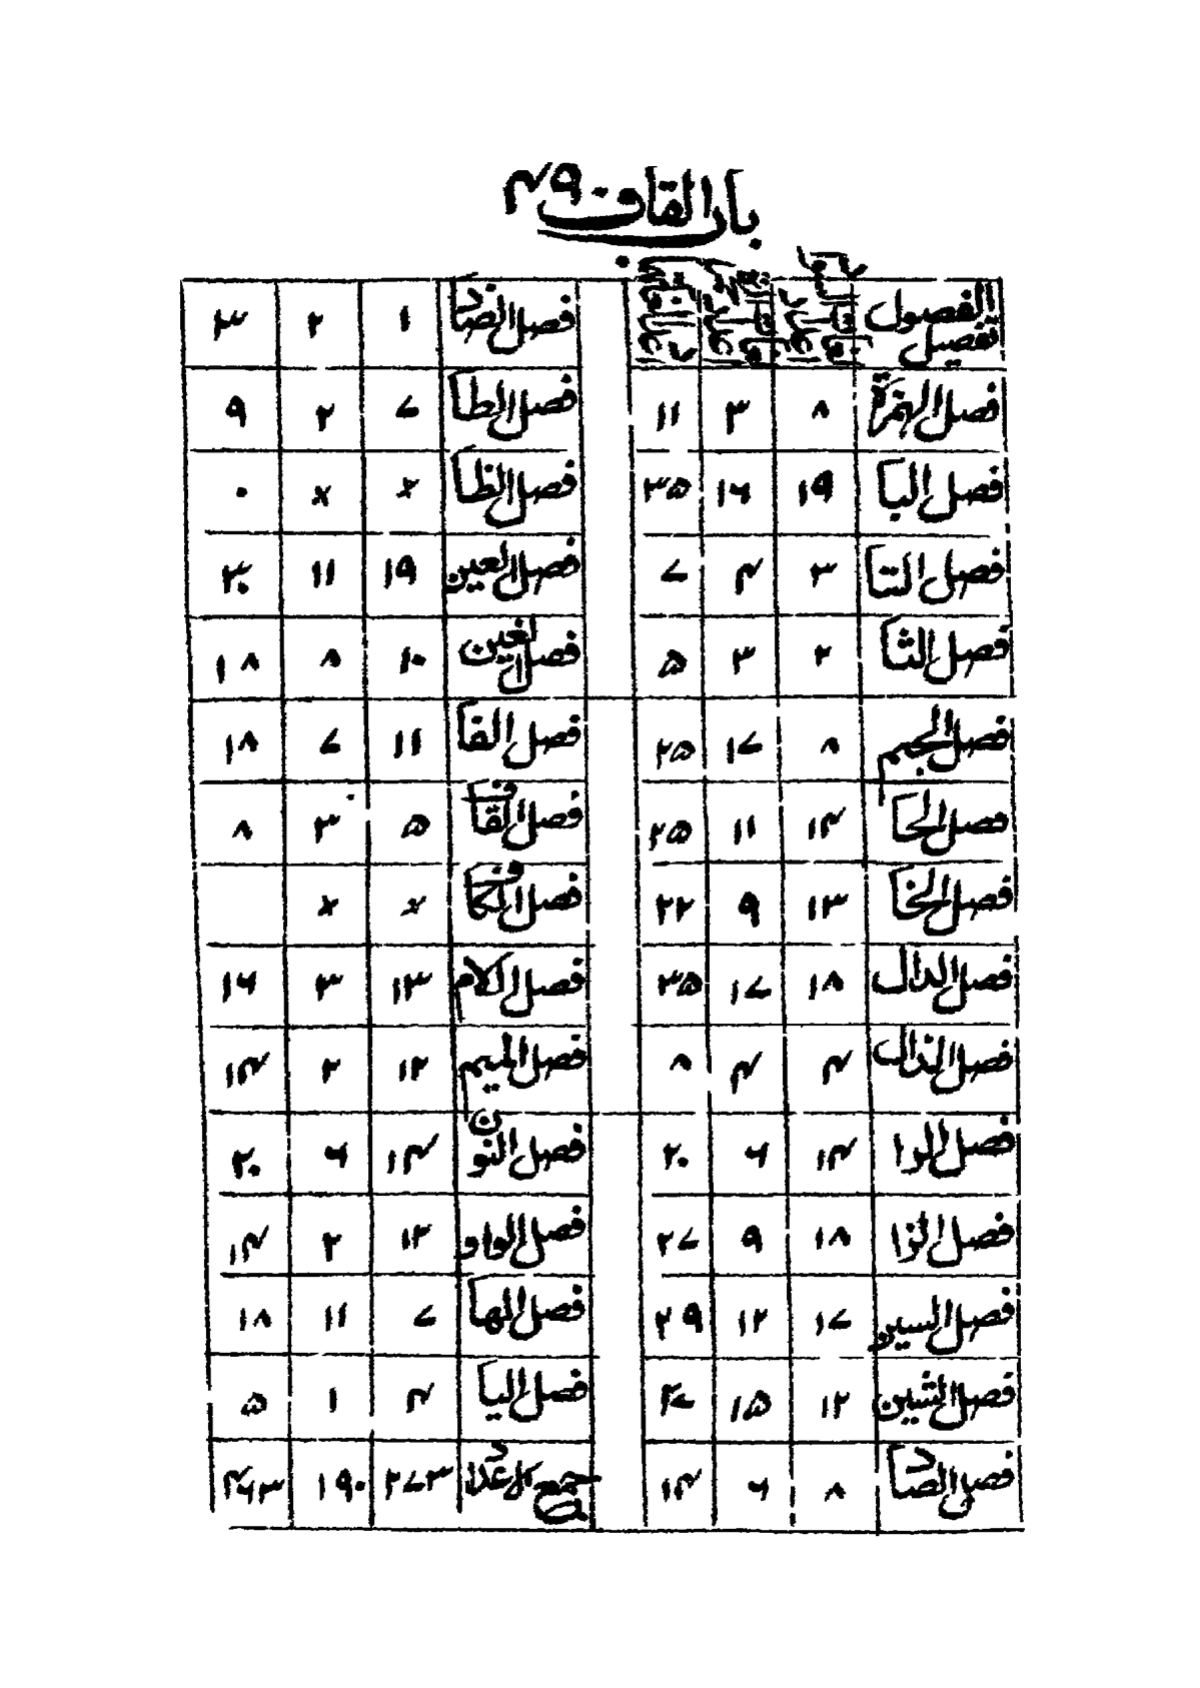 باب القاف ۴۹۰
تفصيل الفصول
فصل الهمزة ۸ ۳ ۱۱
فصل البا ۱۹ ۱۶ ۳۵
فصل التا ۳ ۴ ۷
فصل الثا ۲ ۳ ۵
فصل الجيم ۸ ۱۷ ۲۵
فصل الحا ۱۴ ۱۱ ۲۵
فصل الخا ۱۳ ۹ ۲۲
فصل الدال ۱۸ ۱۷ ۳۵
فصل الذال ۴ ۴ ۸
فصل الرا ۱۴ ۶ ۲۰
فصل الزا ۱۸ ۹ ۲۷
فصل السين ۱۷ ۱۲ ۲۹
فصل الشين ۱۲ ۱۵ ۲۷
فصل الصاد ۸ ۶ ۱۴
فصل الضاد ۱ ۲ ۳
فصل الطا ۷ ۲ ۹
فصل الظا × × ۰
فصل العين ۱۹ ۱۱ ۳۰
فصل الغين ۱۰ ۸ ۱۸
فصل الفا ۱۱ ۷ ۱۸
فصل القاف ۵ ۳ ۸
فصل الكاف × ×
فصل الكلام ۱۳ ۳ ۱۶
فصل الميم ۱۲ ۲ ۱۴
فصل النون ۱۴ ۶ ۲۰
فصل الواو ۱۲ ۲ ۱۴
فصل الها ۷ ۱۱ ۱۸
فصل اليا ۴ ۱ ۵
جمع كل عداد ۲۷۳ ۱۹۰ ۴۶۳